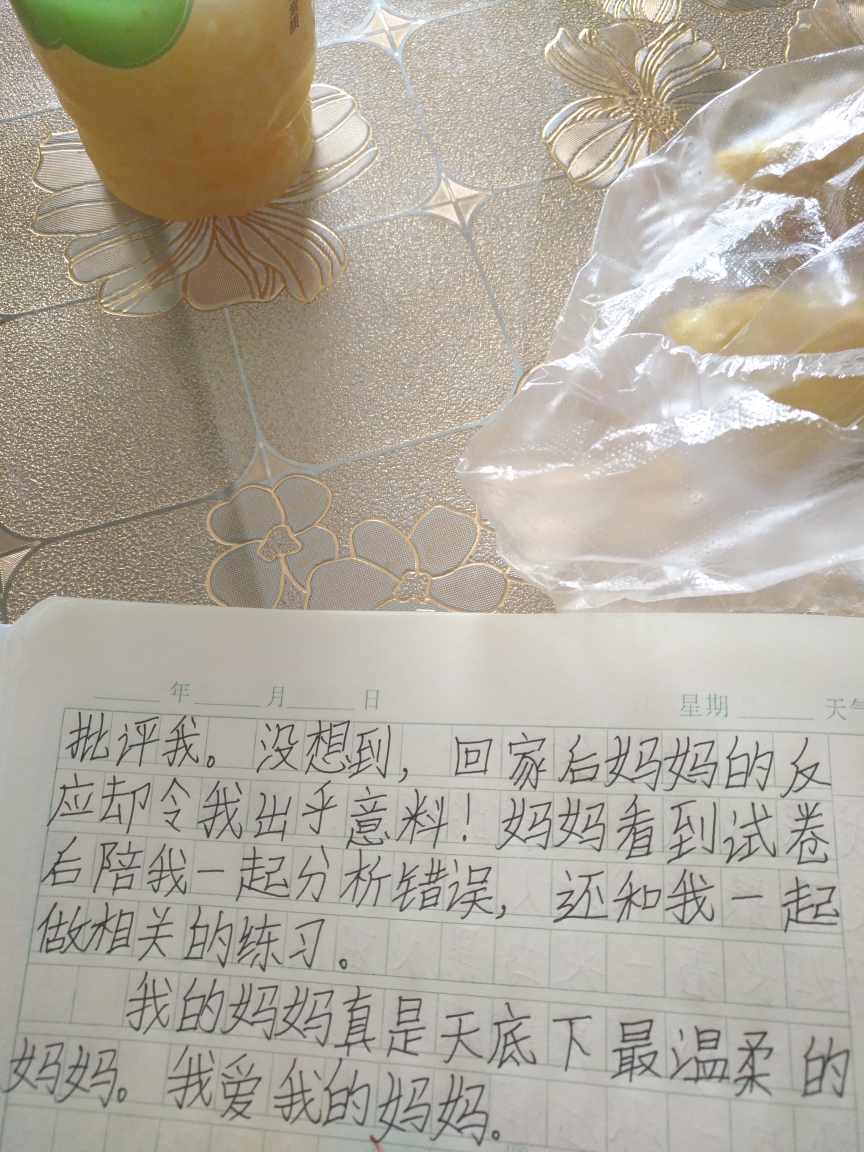 年 月 日 星期 天气
批评我。没想到，回家后妈妈的反
应却令我出乎意料！妈妈看到试卷
后陪我一起分析错误，还和我一起
做相关的练习。
我的妈妈真是天底下最温柔的
妈妈。我爱我的妈妈。